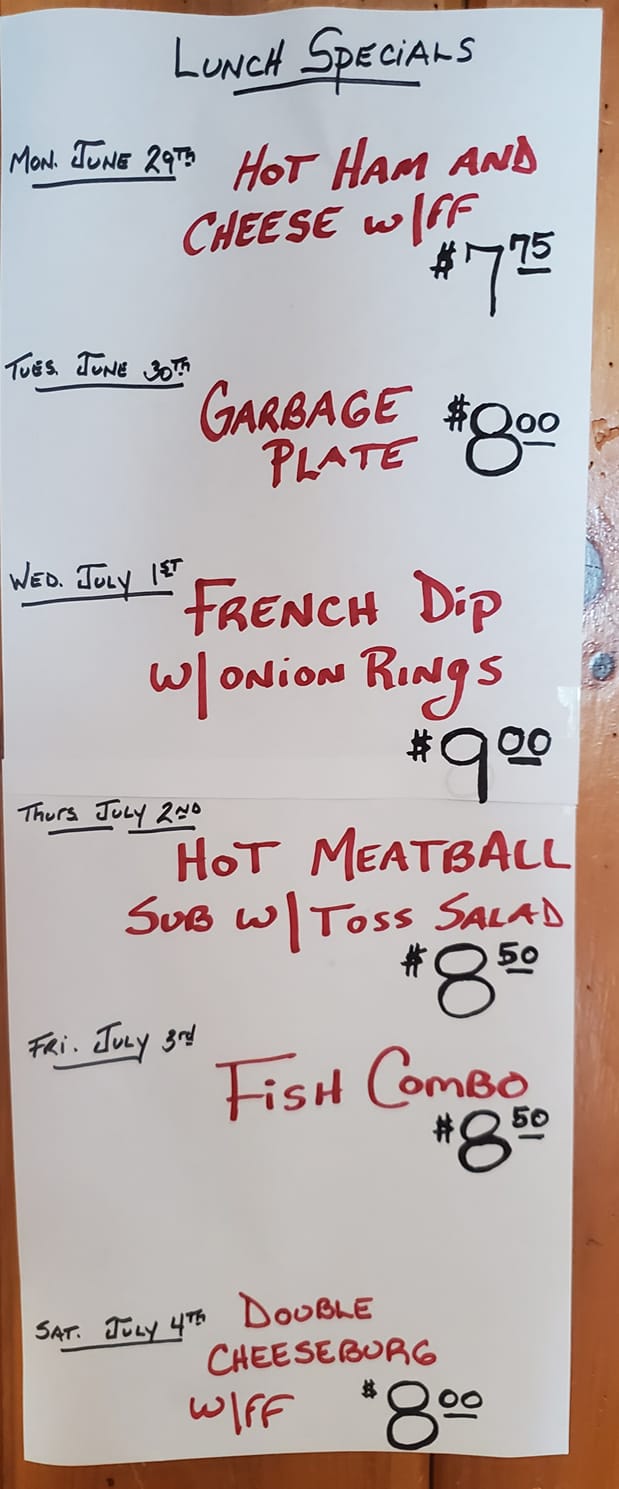 LUNCH SPECIALS
MON. JUNE 29TH
HOT HAM AND
CHEESE W/FF
$7.75
TUES. JUNE 30TH
GARBAGE
PLATE
$8.00
WED. JULY 1ST
FRENCH DIP
W/ONION RINGS
$9.00
THURS JULY 2ND
HOT MEATBALL
SUB W/TOSS SALAD
$8.50
FRI. JULY 3rd
FISH COMBO
$8.50
SAT. JULY 4TH
DOUBLE
CHEESEBURG
W/FF
$8.00